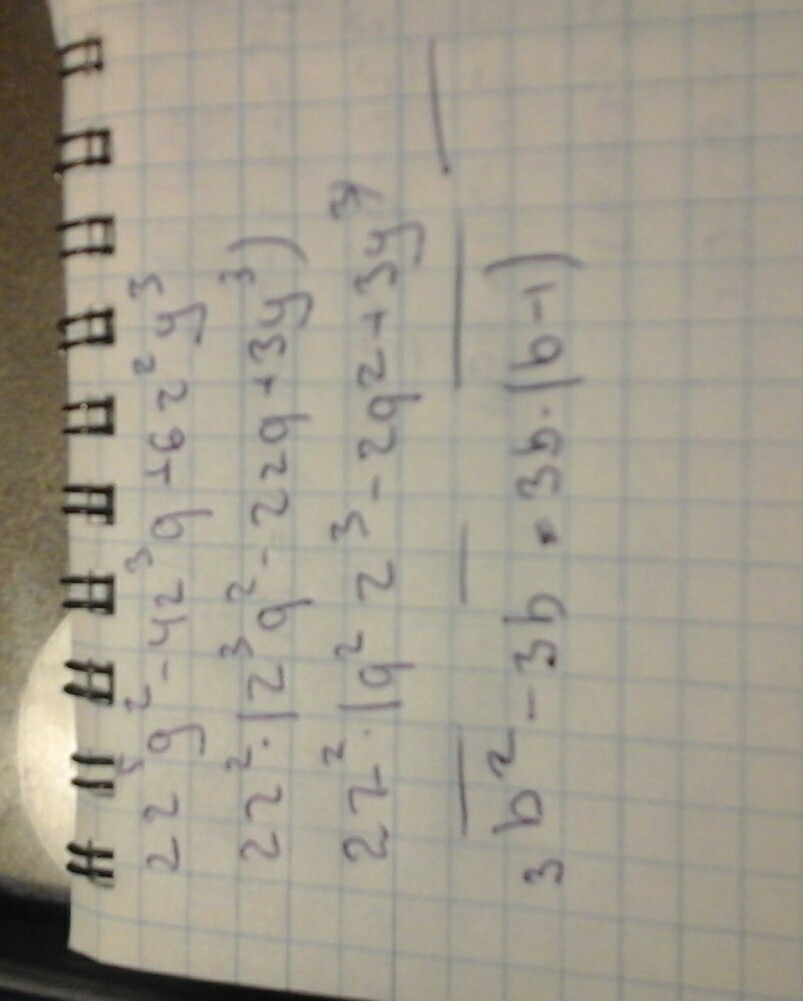 2z⁵g²-4z³g+6z²y³
2z²·(z³g²-2zg+3y³)
2z²·(g²z³-2g2+3y³)
3b²-3b=3b·(b-1)